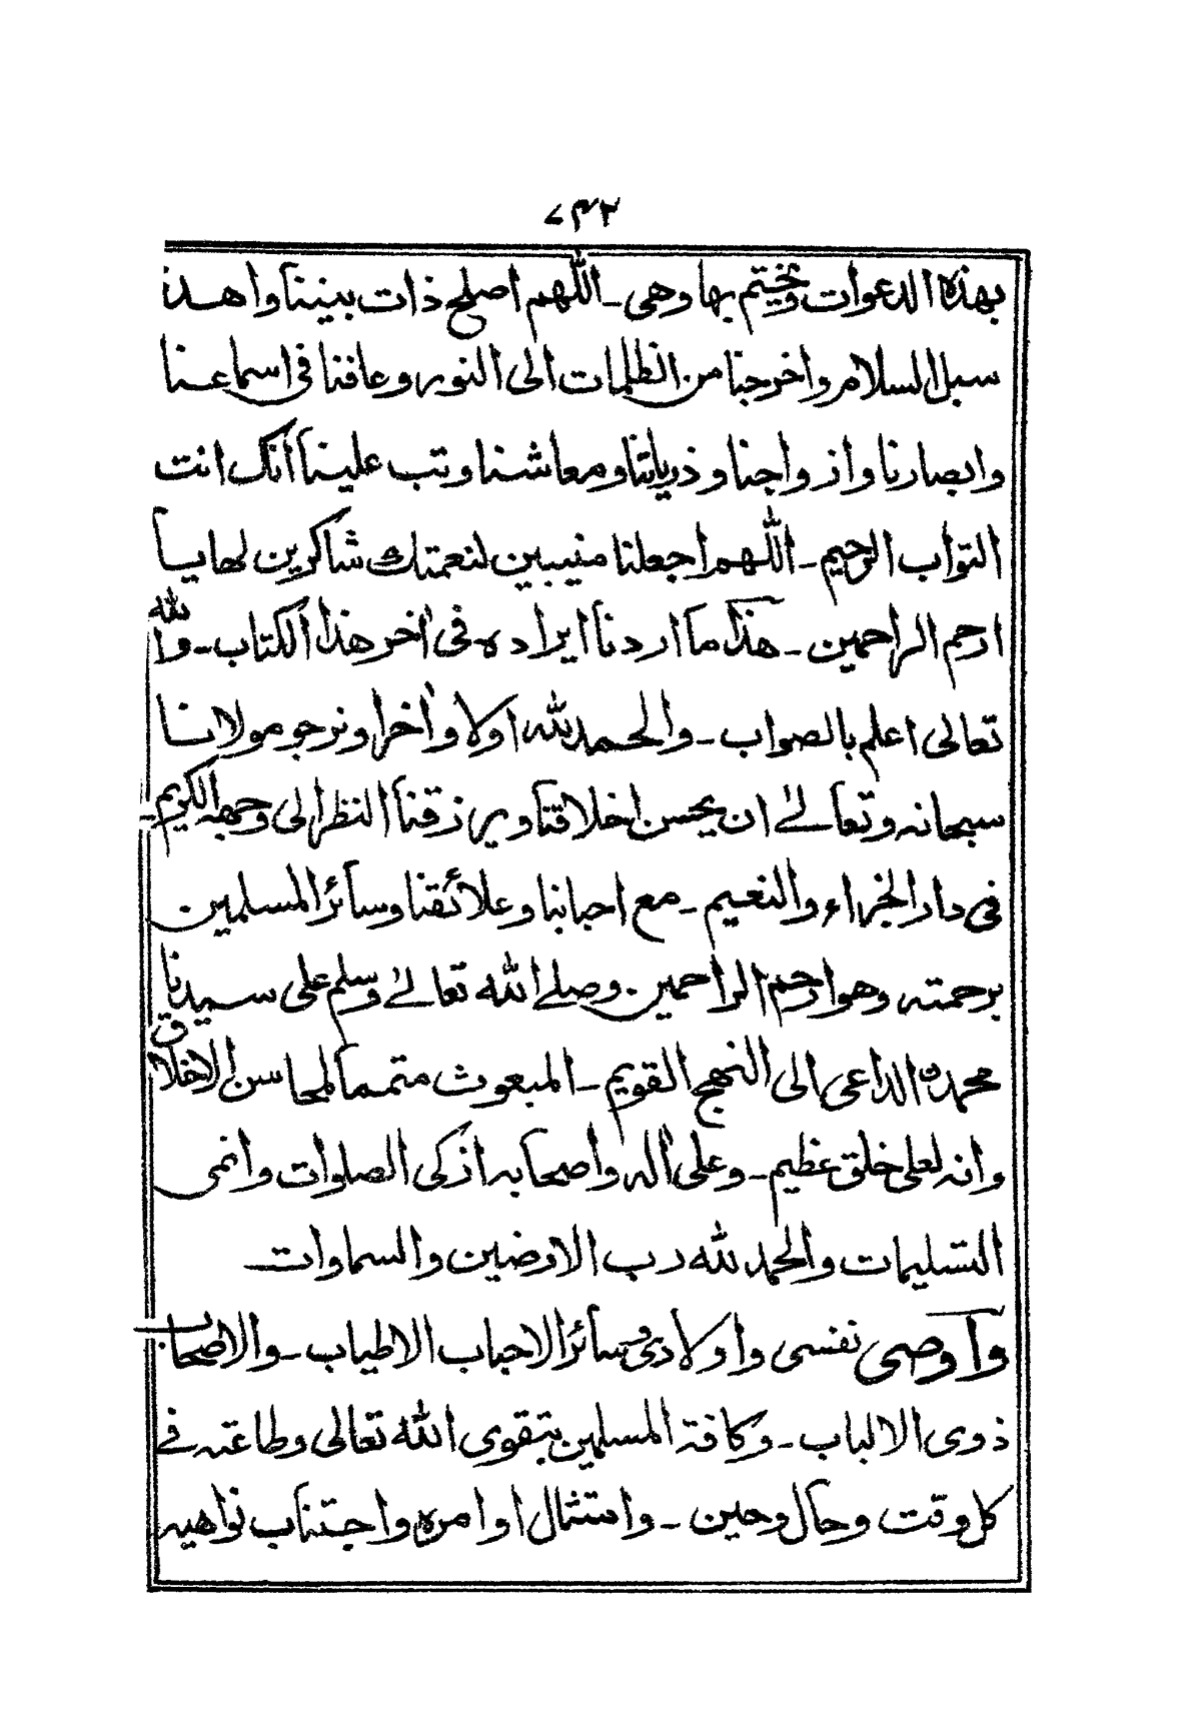 ۷۴۲
بهذه الدعوات ونختم بها وهى ـ اللهم اصلح ذات بيننا واهدنا
سبل السلام واخرجنا من الظلمات الى النور وعافنا فى اسماعنا
وابصارنا وازواجنا وذرياتنا ومعاشنا وتب علينا انك انت
التواب الرحيم ـ اللهم اجعلنا منيبين لنعمتك شاكرين لها يا
ارحم الراحمين ـ هذا ما اردنا ايراده فى اخر هذا الكتاب ـ والله
تعالى اعلم بالصواب ـ والحمد لله اولا واخرا ونرجو مولانا
سبحانه وتعالىٰ ان يحسن اخلاقنا ويرزقنا النظر الى وجهه الكريم ـ
فى دار الجزاء والنعيم ـ مع احبابنا وعلائقنا وسائر المسلمين
برحمته وهو ارحم الراحمين . وصلے الله تعالىٰ وسلم على سيدنا
محمدن الداعى الى النهج القويم ـ المبعوث متمما لمحاسن الاخلاق
وانه لعلى خلق عظيم ـ وعلى اله واصحابه ازكى الصلوات وانمى
التسليمات والحمد لله رب الارضين والسماوات
واوصى نفسى واولادى وسائر الاحباب الاطياب ـ والاصحاب
ذوى الالباب ـ وكافة المسلمين بتقوى الله تعالى وطاعته فے
كل وقت وحال وحين ـ وامتثال اوامره واجتناب نواهيه